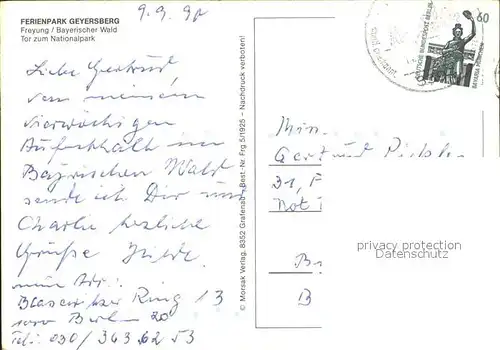 FERIENPARK GEYERSBERG
Freyung / Bayerischer Wald
Tor zum Nationalpark
9.9.90
Liebe Gertrud
von meinem
vierwöchigen
Aufenthalt im
Bayrischen Wald
sende ich Dir und
Charlie herzliche
Grüße Hilde
mein Adr.:
Ring 13
1000 Berlin 20
Tel: 030/363 62 53
© Morsak Verlag, 8352 Grafenau · Best.-Nr. Frg 5/1925 – Nachdruck verboten!
60
DEUTSCHE BUNDESPOST BERLIN
BAVARIA MÜNCHEN
Gertrud
31, F
Rot
B
privacy protection
Datenschutz